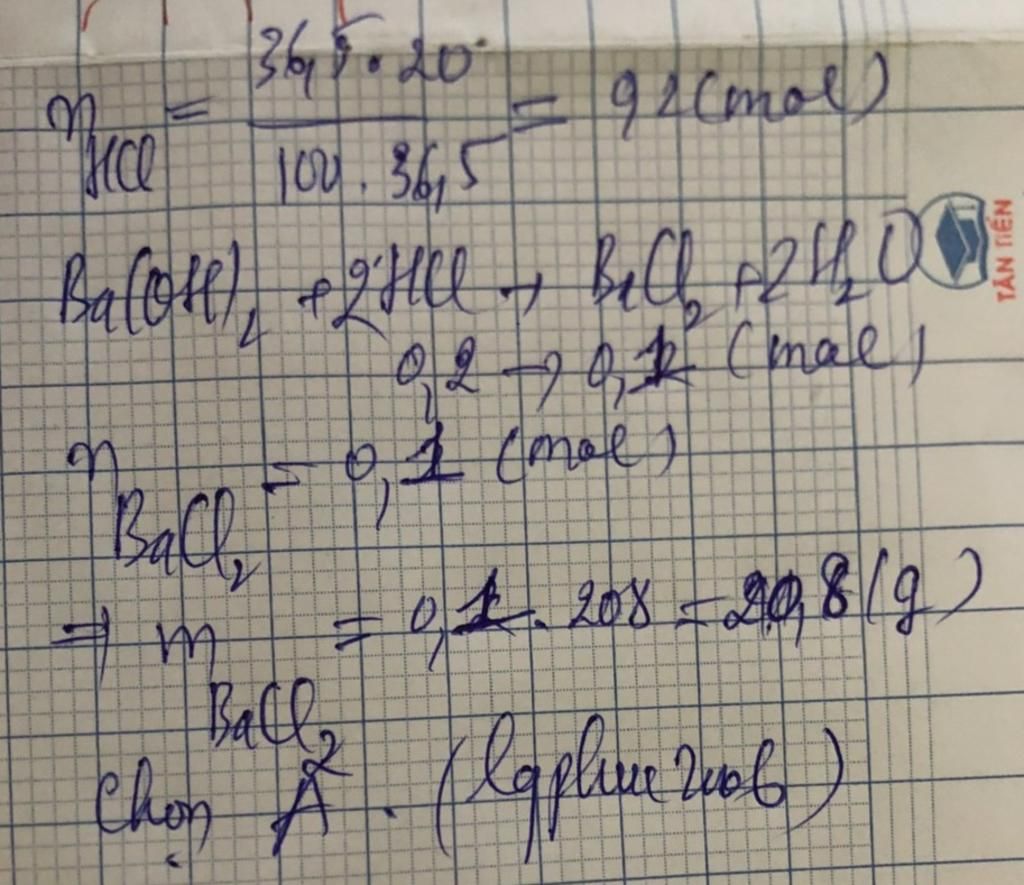 n HCl = 36,5 . 20 / 100 . 36,5 = 0,2 (mol)
Ba(OH)2 + 2HCl → BaCl2 + 2H2O
0,2 → 0,1 (mol)
n BaCl2 = 0,1 (mol)
⇒ m BaCl2 = 0,1 . 208 = 20,8 (g)
Chọn A.
TÂN TIẾN